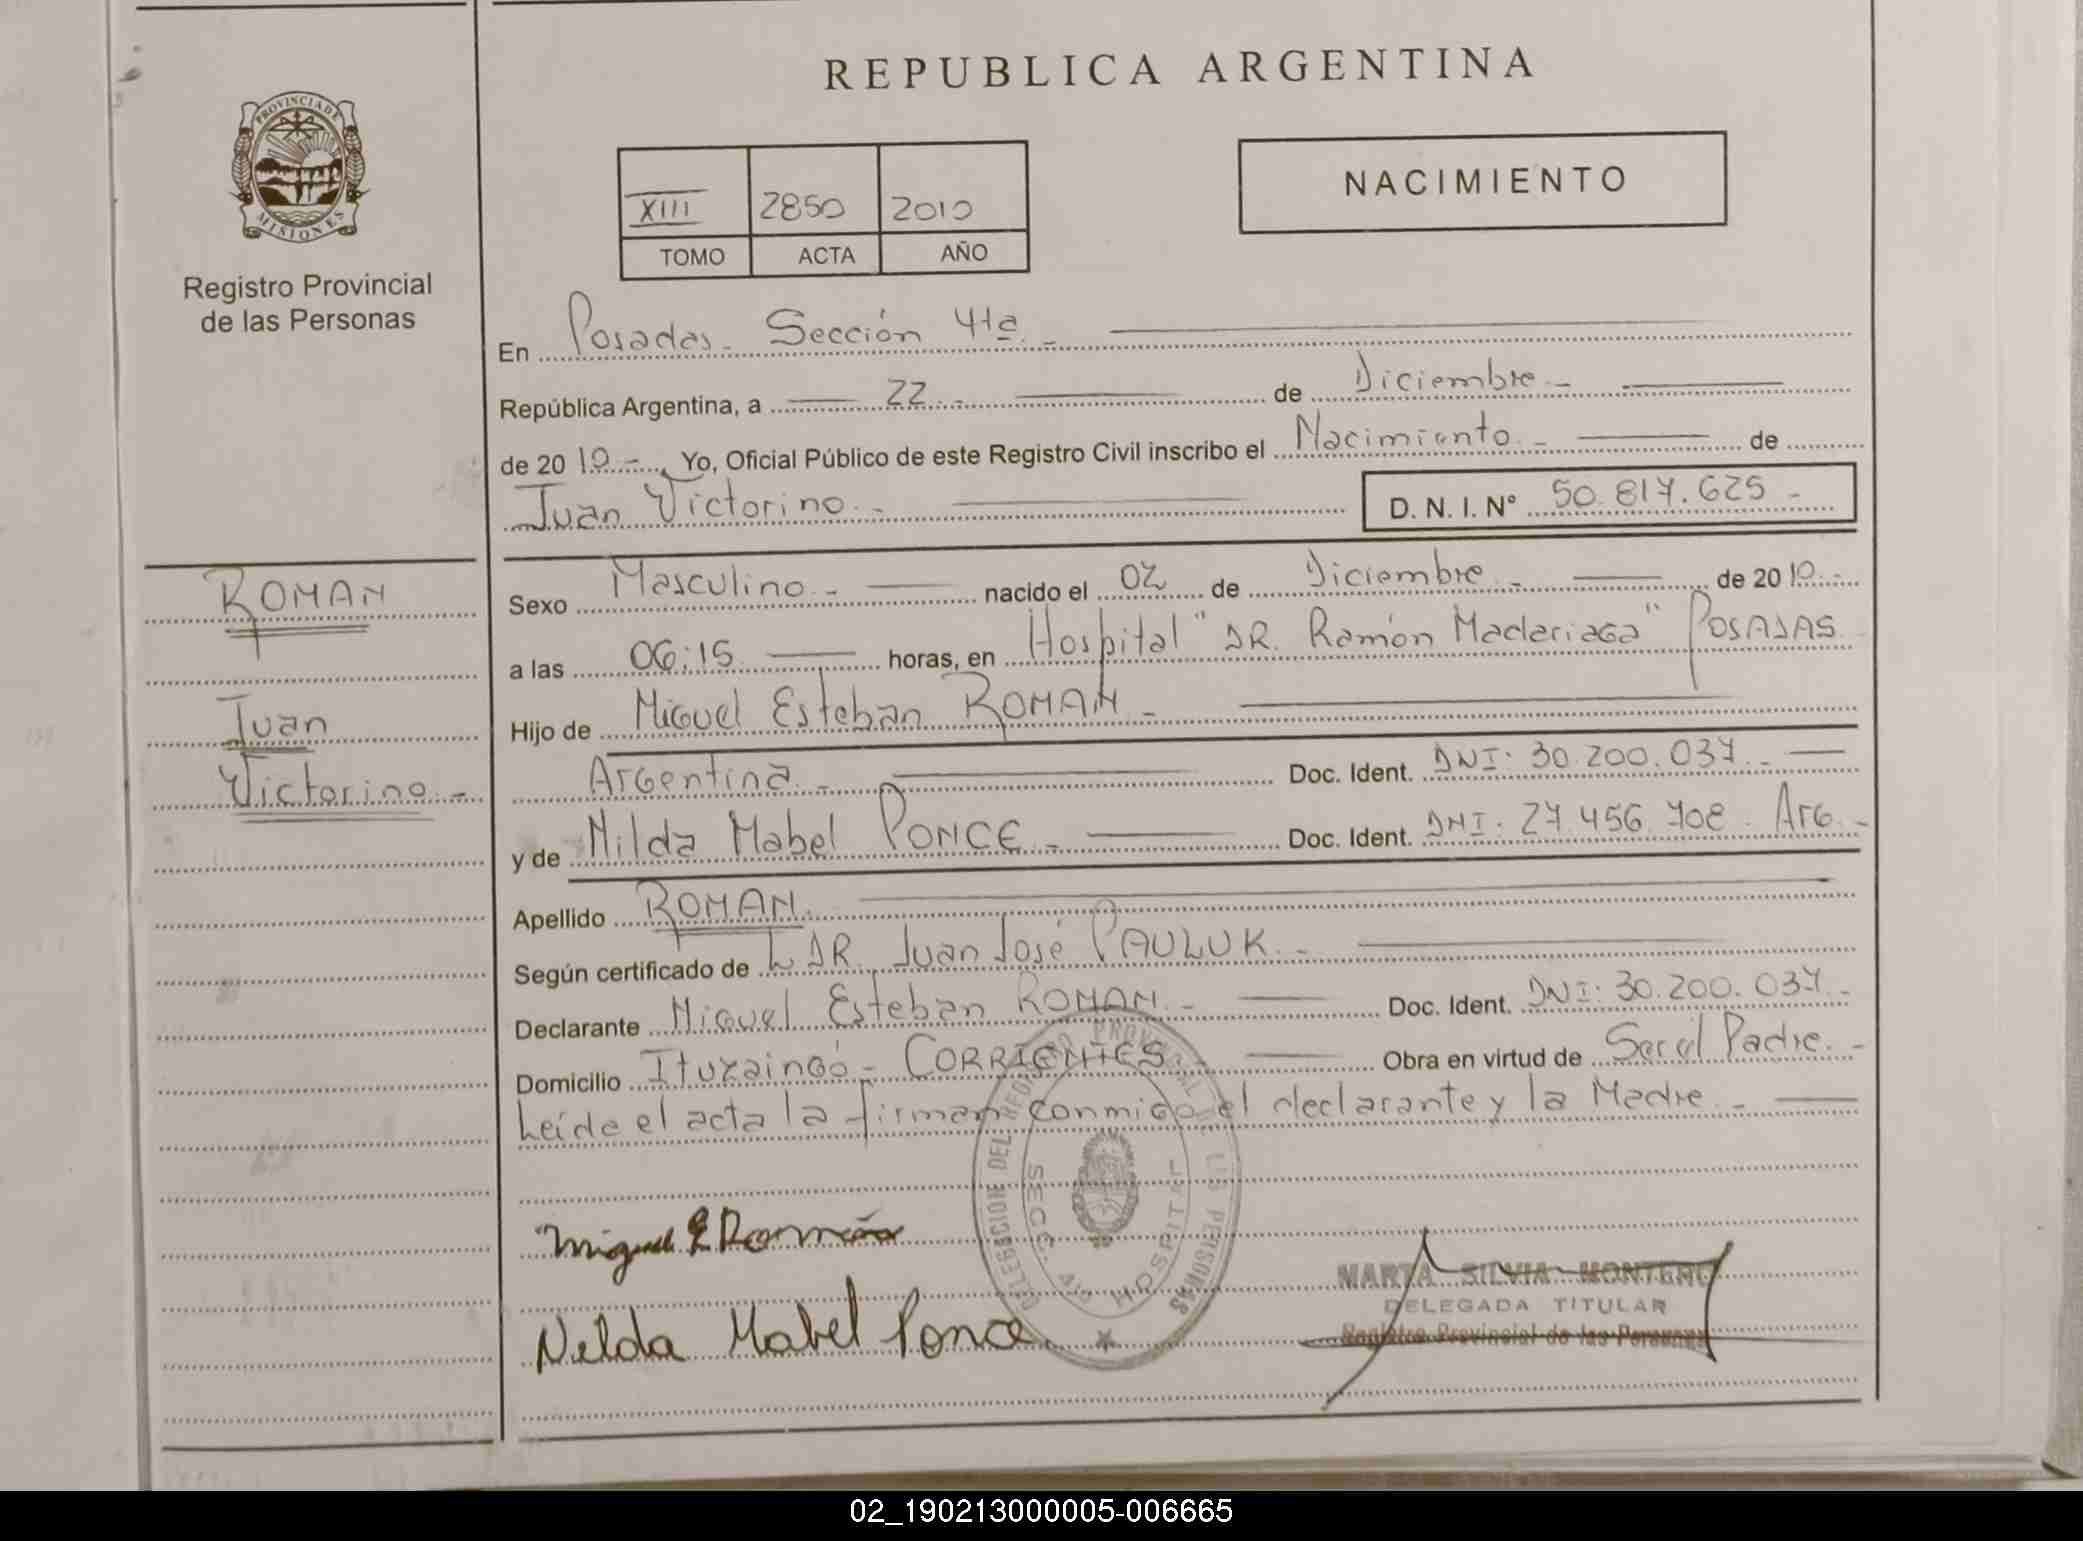 REPUBLICA ARGENTINA
PROVINCIA DE MISIONES
Registro Provincial
de las Personas
XIII 2850 2010
TOMO ACTA AÑO
NACIMIENTO
En Posadas - Sección 4ta. -
República Argentina, a 22 - de Diciembre -
de 2010 -, Yo, Oficial Público de este Registro Civil inscribo el Nacimiento - de
Juan Victorino - D. N. I. Nº 50.817.625 -
ROMAN
Juan
Victorino -
Sexo Masculino - nacido el 02 de Diciembre - de 2010 -
a las 06:15 horas, en Hospital "DR. Ramón Madariaga" POSADAS
Hijo de Miguel Esteban ROMAN -
Argentina - Doc. Ident. DNI: 30.200.037 -
y de Nilda Mabel PONCE - Doc. Ident. DNI: 27.456.708 - Arg -
Apellido ROMAN
Según certificado de DR. Juan José PAULUK -
Declarante Miguel Esteban ROMAN - Doc. Ident. DNI: 30.200.037 -
Domicilio Ituzaingó - CORRIENTES Obra en virtud de Ser el Padre -
Leída el acta la firman conmigo el declarante y la Madre -
DELEGACION DEL REGISTRO PROVINCIAL DE LAS PERSONAS
SECC. 4ta HOSPITAL
Miguel E Román
Nelda Mabel Ponce
MARTA SILVIA MONTERO
DELEGADA TITULAR
Registro Provincial de las Personas
02_190213000005-006665